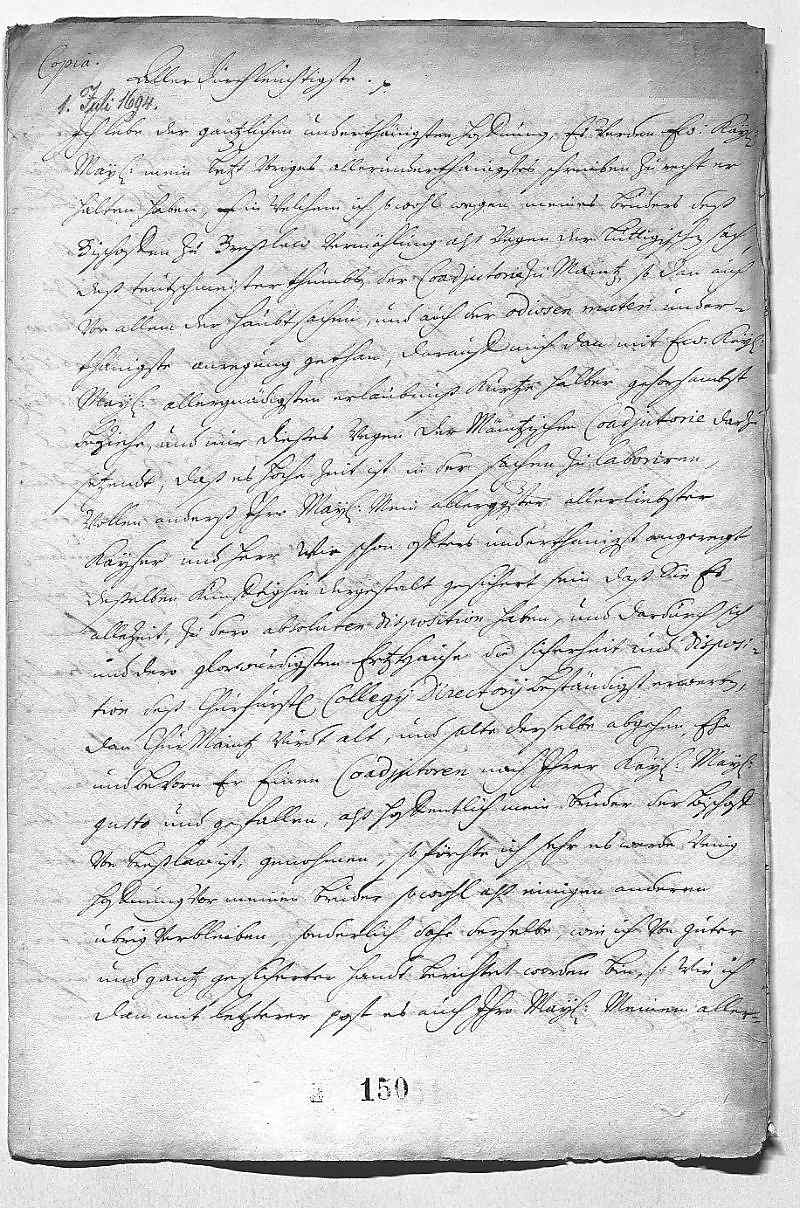 Copia.
Allerdurchleuchtigste .
1. Juli 1694.
Ich lebe der gäntzlichen underthänigsten hoffnung, Es werden Ew. Kay:
May: mein letzt voriges allerunderthänigstes schreiben zurecht er
halten haben, in welchem ich so wohl wegen meines Bruders deß
Bischoffen zu Breßlaw vermählung alß wegen der Lüttigischen sach,
deß teutschmeisterthumbs, der Coadjutorie zu Maintz, so dan auch
vor allem der haubtsachen, und auch der odiosen materi under-
thänigste anregung gethan, darauff mich dan mit Ew. Kay:
May: allergnädigsten erlaubnuß kürtze halber gehorsambst
beziehe, und nur dießes wegen der Mäintzischen Coadjutorie darzu
setzendt, daß es hohe Zeit ist in der sachen zu laboriren,
wollen anderst Ihro May: Mein allerggster allerliebster
Kayser und Herr wie schon öffters underthänigst angeregt
deßselben künfftighin dergestalt gesichert sein daß Sie Es
allezeit, zu dero absoluten disposition haben, und dardurch sich
und dero glorwürdigsten Ertzhauße die sicherheit und disposi-
tion deß Churfürstl Collegij Directorij beständigst erwerben,
dan Chur Maintz wirdt alt, und solte derselbe abgehen Ehe
und bevorn Er Einen Coadjutoren nach Ihrer Kay: May:
gusto und gefallen, alß hoffentlich mein bruder der Bischoff
von Breßlaw ist, genohmen, so förchte ich sehr es werde wenig
hoffnung vor meinen Bruder sowohl alß einigen anderen
übrig verbleiben, sonderlich dahe derselbe, wie ich von guter
und gantz gesicherter handt berichtet worden bin, /: wie ich
dan mit letzterer post es auch Ihro May: Meinem aller-
150